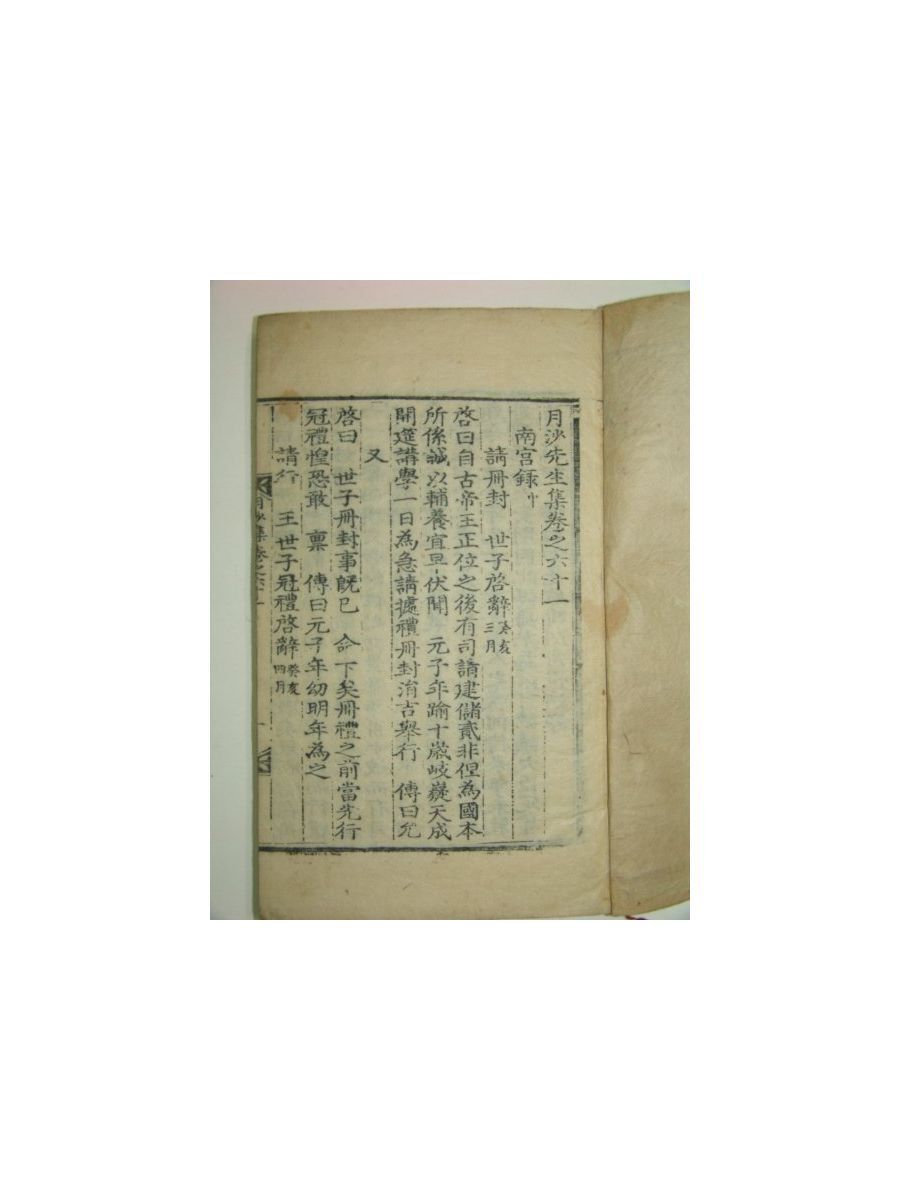 月沙先生集卷之六十一
南宮錄中
請冊封　世子啓辭癸亥三月
啓曰自古帝王正位之後有司請建儲貳非但爲國本
所係誠以輔養宜早伏聞　元子年踰十歲岐嶷天成
開筵講學一日爲急請據禮冊封涓吉舉行　傳曰允
又
啓曰　世子冊封事旣已　命下矣冊禮之前當先行
冠禮惶恐敢　稟　傳曰元子年幼明年爲之
請行　王世子冠禮啓辭癸亥四月
月沙集卷之六十一